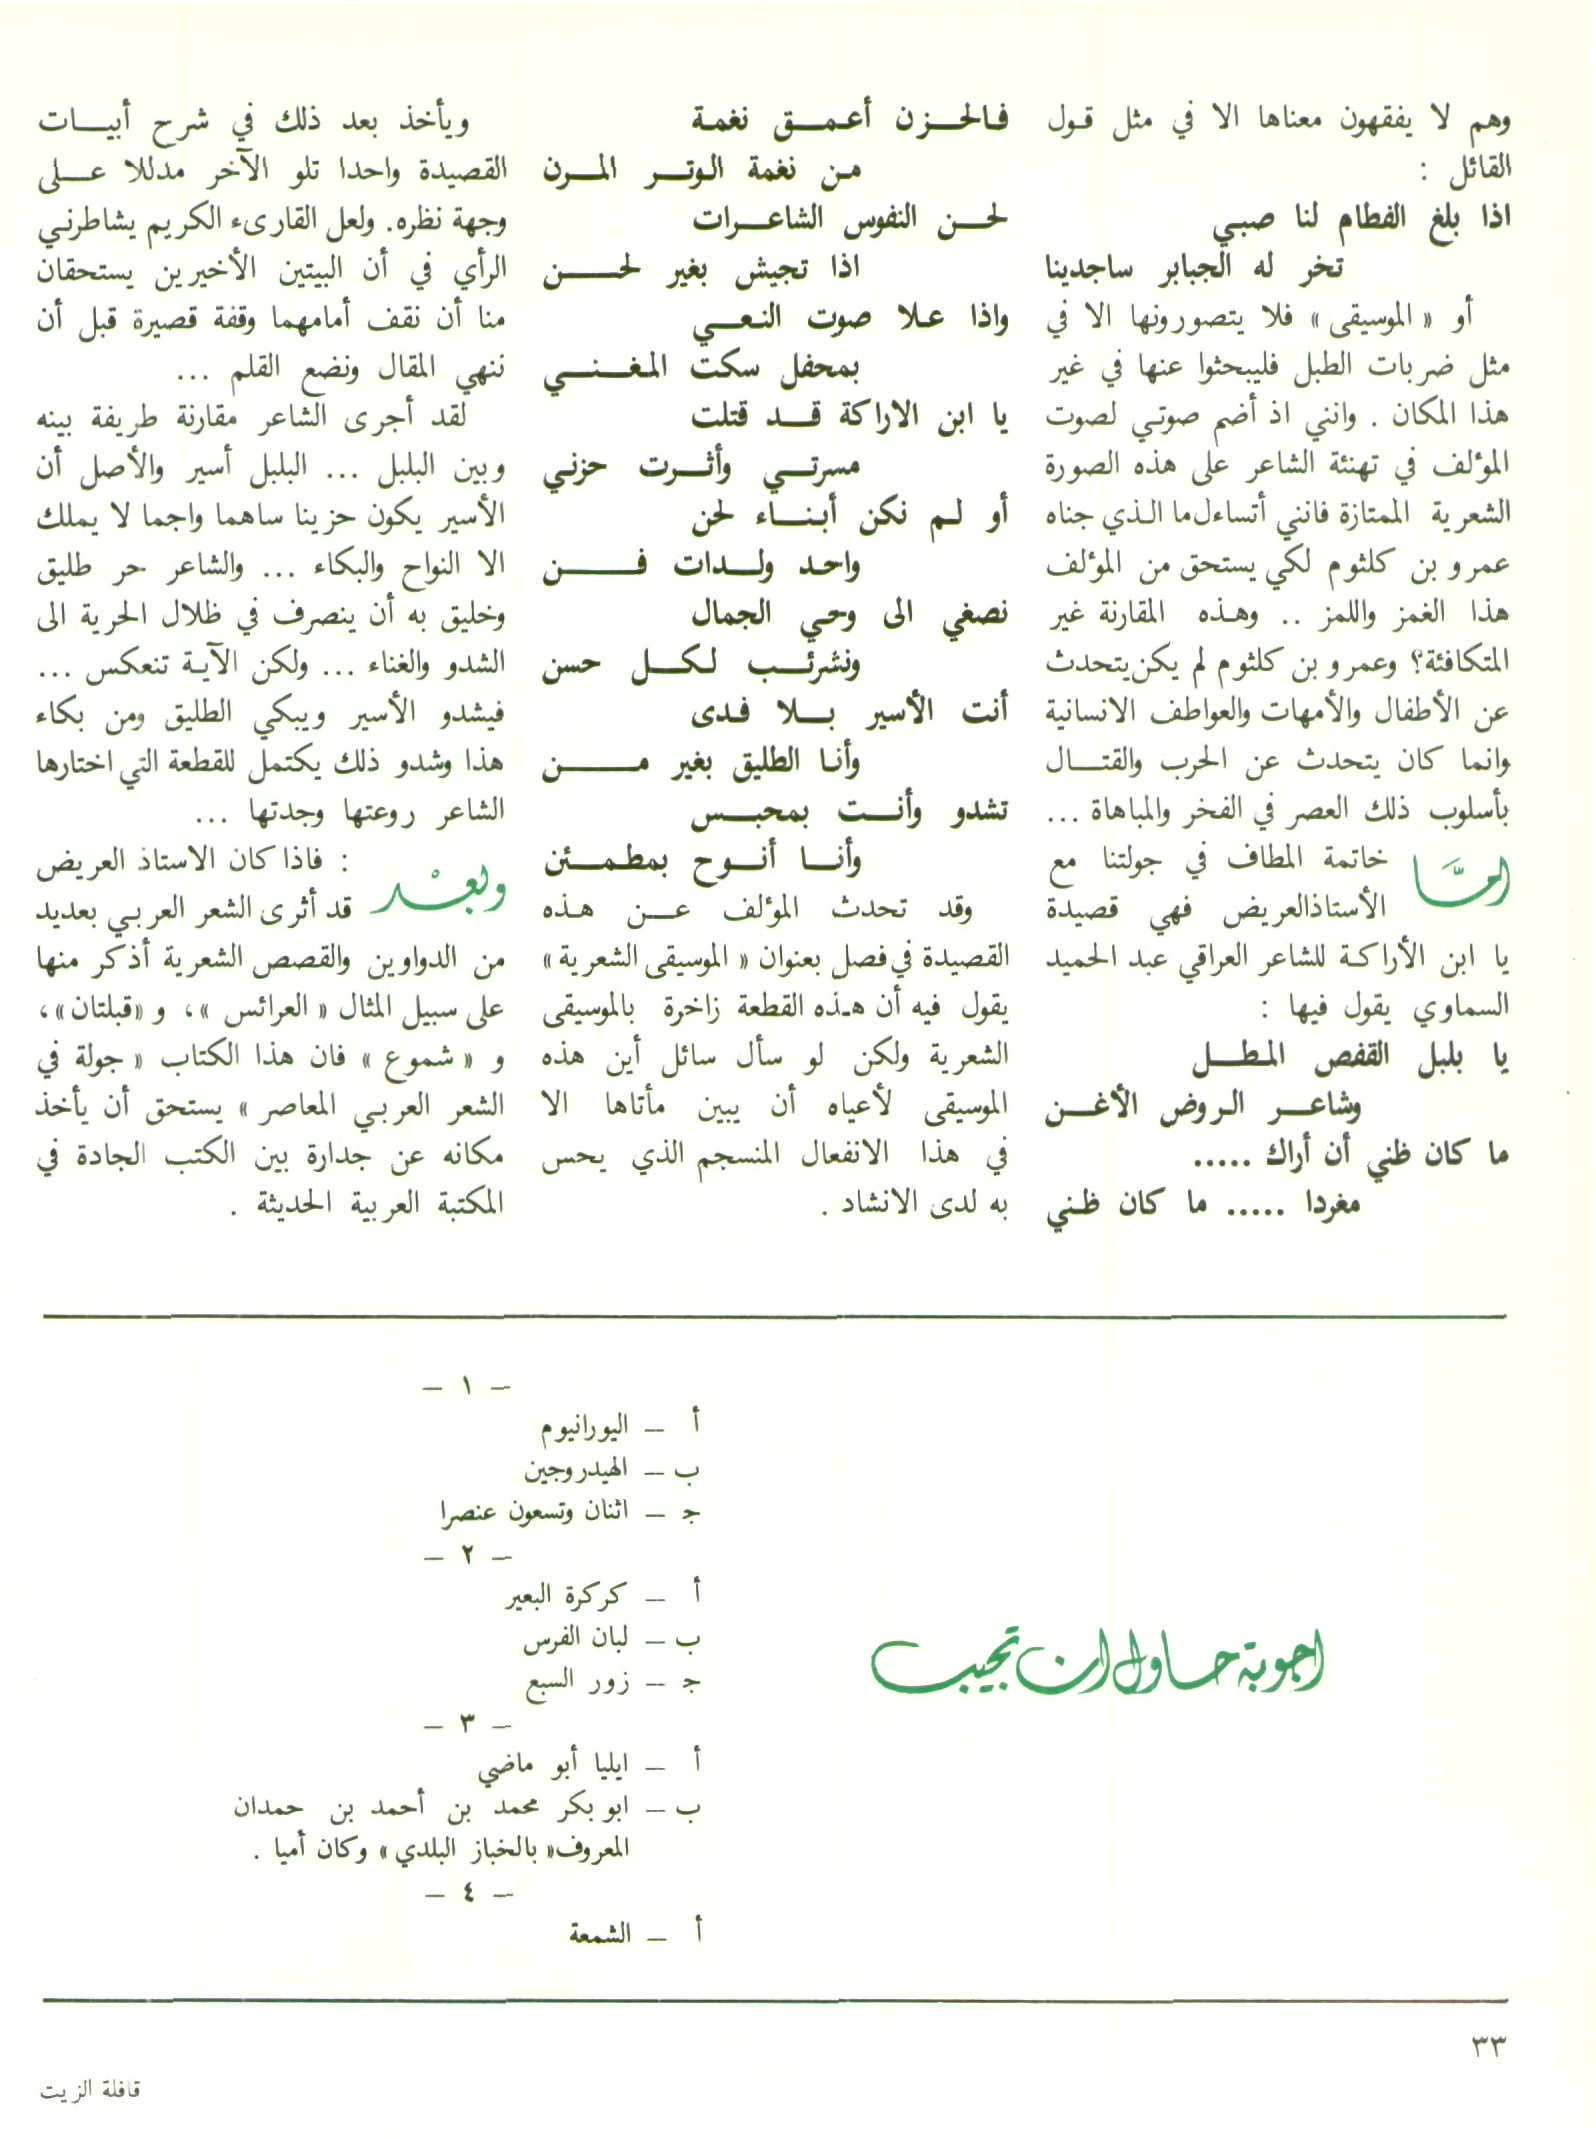 وهم لا يفقهون معناها الا في مثل قول
القائل :
اذا بلغ الفطام لنا صبي
تخر له الجبابر ساجدينا
أو « الموسيقى » فلا يتصورونها الا في
مثل ضربات الطبل فليبحثوا عنها في غير
هذا المكان . وانني اذ أضم صوتي لصوت
المؤلف في تهنئة الشاعر على هذه الصورة
الشعرية الممتازة فانني أتساءل ما الذي جناه
عمرو بن كلثوم لكي يستحق من المؤلف
هذا الغمز واللمز .. وهذه المقارنة غير
المتكافئة؟ وعمرو بن كلثوم لم يكن يتحدث
عن الأطفال والأمهات والعواطف الانسانية
وانما كان يتحدث عن الحرب والقتال
بأسلوب ذلك العصر في الفخر والمباهاة ...
امّا خاتمة المطاف في جولتنا مع
الأستاذ العريض فهي قصيدة
يا ابن الأراكة للشاعر العراقي عبد الحميد
السماوي يقول فيها :
يا بلبل القفص المطل
وشاعر الروض الأغن
ما كان ظني أن أراك .....
مغردا ..... ما كان ظني
فالحزن أعمق نغمة
من نغمة الوتر المرن
لحن النفوس الشاعرات
اذا تجيش بغير لحن
واذا علا صوت النعي
بمحفل سكت المغني
يا ابن الاراكة قد قتلت
مسرتي وأثرت حزني
أو لم نكن أبناء لحن
واحد ولدات فن
نصغي الى وحي الجمال
ونشرئب لكل حسن
أنت الأسير بلا فدى
وأنا الطليق بغير من
تشدو وأنت بمحبس
وأنا أنوح بمطمئن
وقد تحدث المؤلف عن هذه
القصيدة في فصل بعنوان « الموسيقى الشعرية »
يقول فيه أن هذه القطعة زاخرة بالموسيقى
الشعرية ولكن لو سأل سائل أين هذه
الموسيقى لأعياه أن يبين مأتاها الا
في هذا الانفعال المنسجم الذي يحس
به لدى الانشاد .
ويأخذ بعد ذلك في شرح أبيات
القصيدة واحدا تلو الآخر مدللا على
وجهة نظره. ولعل القارىء الكريم يشاطرني
الرأي في أن البيتين الأخيرين يستحقان
منا أن نقف أمامهما وقفة قصيرة قبل أن
ننهي المقال ونضع القلم ...
لقد أجرى الشاعر مقارنة طريفة بينه
وبين البلبل ... البلبل أسير والأصل أن
الأسير يكون حزينا ساهما واجما لا يملك
الا النواح والبكاء ... والشاعر حر طليق
وخليق به أن ينصرف في ظلال الحرية الى
الشدو والغناء ... ولكن الآية تنعكس ...
فيشدو الأسير ويبكي الطليق ومن بكاء
هذا وشدو ذلك يكتمل للقطعة التي اختارها
الشاعر روعتها وجدتها ...
وبعْد : فاذا كان الاستاذ العريض
قد أثرى الشعر العربي بعديد
من الدواوين والقصص الشعرية أذكر منها
على سبيل المثال « العرائس »، و «قبلتان»،
و « شموع » فان هذا الكتاب « جولة في
الشعر العربي المعاصر » يستحق أن يأخذ
مكانه عن جدارة بين الكتب الجادة في
المكتبة العربية الحديثة .
اجوبة حاول ان تجيب
– ١ –
أ – اليورانيوم
ب – الهيدروجين
ج – اثنان وتسعون عنصرا
– ٢ –
أ – كركرة البعير
ب – لبان الفرس
ج – زور السبع
– ٣ –
أ – ايليا أبو ماضي
ب – ابو بكر محمد بن أحمد بن حمدان
المعروف« بالخباز البلدي » وكان أميا .
– ٤ –
أ – الشمعة
٣٣
قافلة الزيت